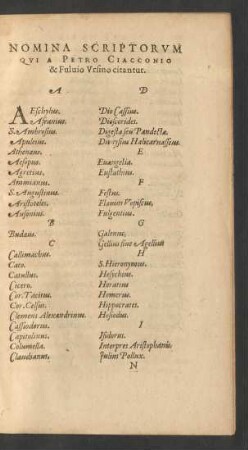 NOMINA SCRIPTORVM
QVI A PETRO CIACCONIO
& Fuluio Vrsino citantur.
A
AEschylus.
Asranius.
S. Ambrosius.
Apuleius.
Athenæus.
Aesopus.
Agretius.
Ammianus.
S. Augustinus.
Aristoteles.
Ausonius.
B
Budæus.
C
Callimachus.
Cato.
Catullus.
Cicero.
Cor. Tacitus.
Cor. Celsus.
Clemens Alexandrinus.
Cassiodorus.
Capitolinus.
Columella.
Claudianus.
D
Dio Cassius.
Dioscorides.
Digesta seu Pandectæ.
Dionysius Halicarnasseus.
E
Euangelia.
Eustathius.
F
Festus.
Flauius Vopiscus.
Fulgentius.
G
Galenus.
Gellius siue Agellius
H
S. Hieronymus.
Hesychius.
Horatius
Homerus.
Hippocrates.
Hesiodus.
I
Isidorus.
Interpres Aristophanis.
Julius Pollux.
N